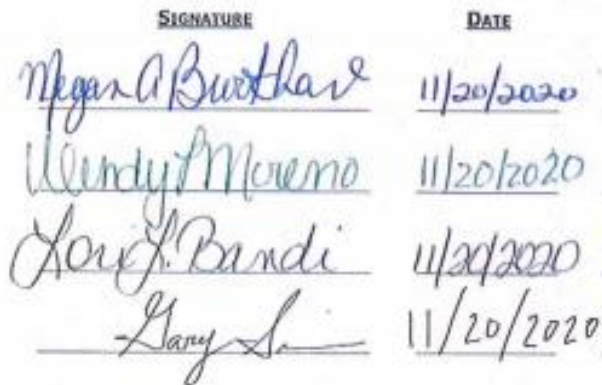 SIGNATURE DATE
Megan A 11/20/2020
Wendy L Moreno 11/20/2020
Lori L. Bandi 11/20/2020
Gary 11/20/2020